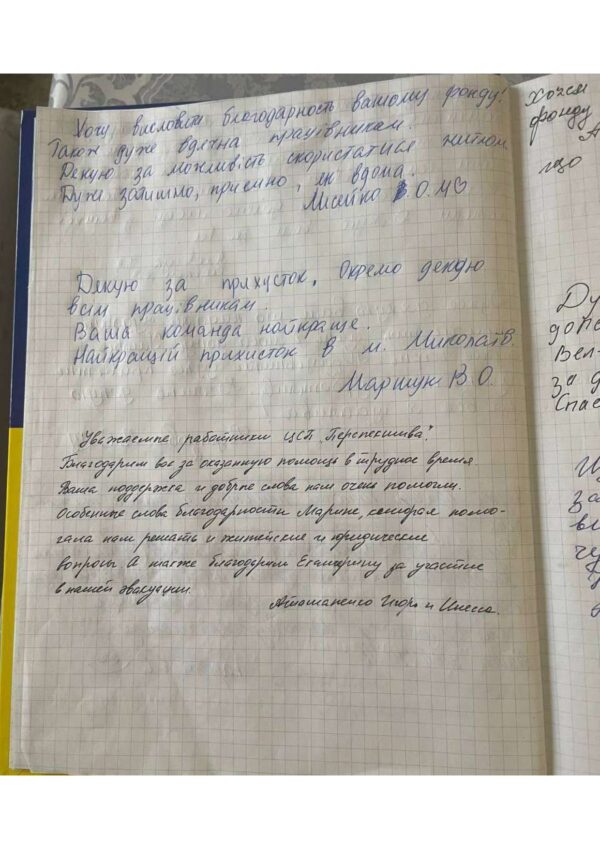 Хочу висловити благодарность вашому фонду!
Також дуже вдячна працівникам.
Дякую за можливість скористатися житлом
Дуже затишно, приємно, як вдома.
О.М♡
Дякую за прихисток. Окремо дякую
всім працівникам.
Ваша команда найкраще.
Найкращій прихисток в м. Миколаїв
Маршук В.О.
Уважаемые работники ЦСП "Перспектива".
Благодарим вас за оказанную помощь в трудное время
Ваша поддержка и добрые слова нам очень помогли.
Особенные слова благодарности Марине, которая помо-
гала нам решать и житейские и юридические
вопросы. А также благодарим Екатерину за участие
в нашей эвакуации.
Атаманенко Игорь и Инесса.
Хочем
фонду
що
Ду
допо
Вел
за д
Спас
за